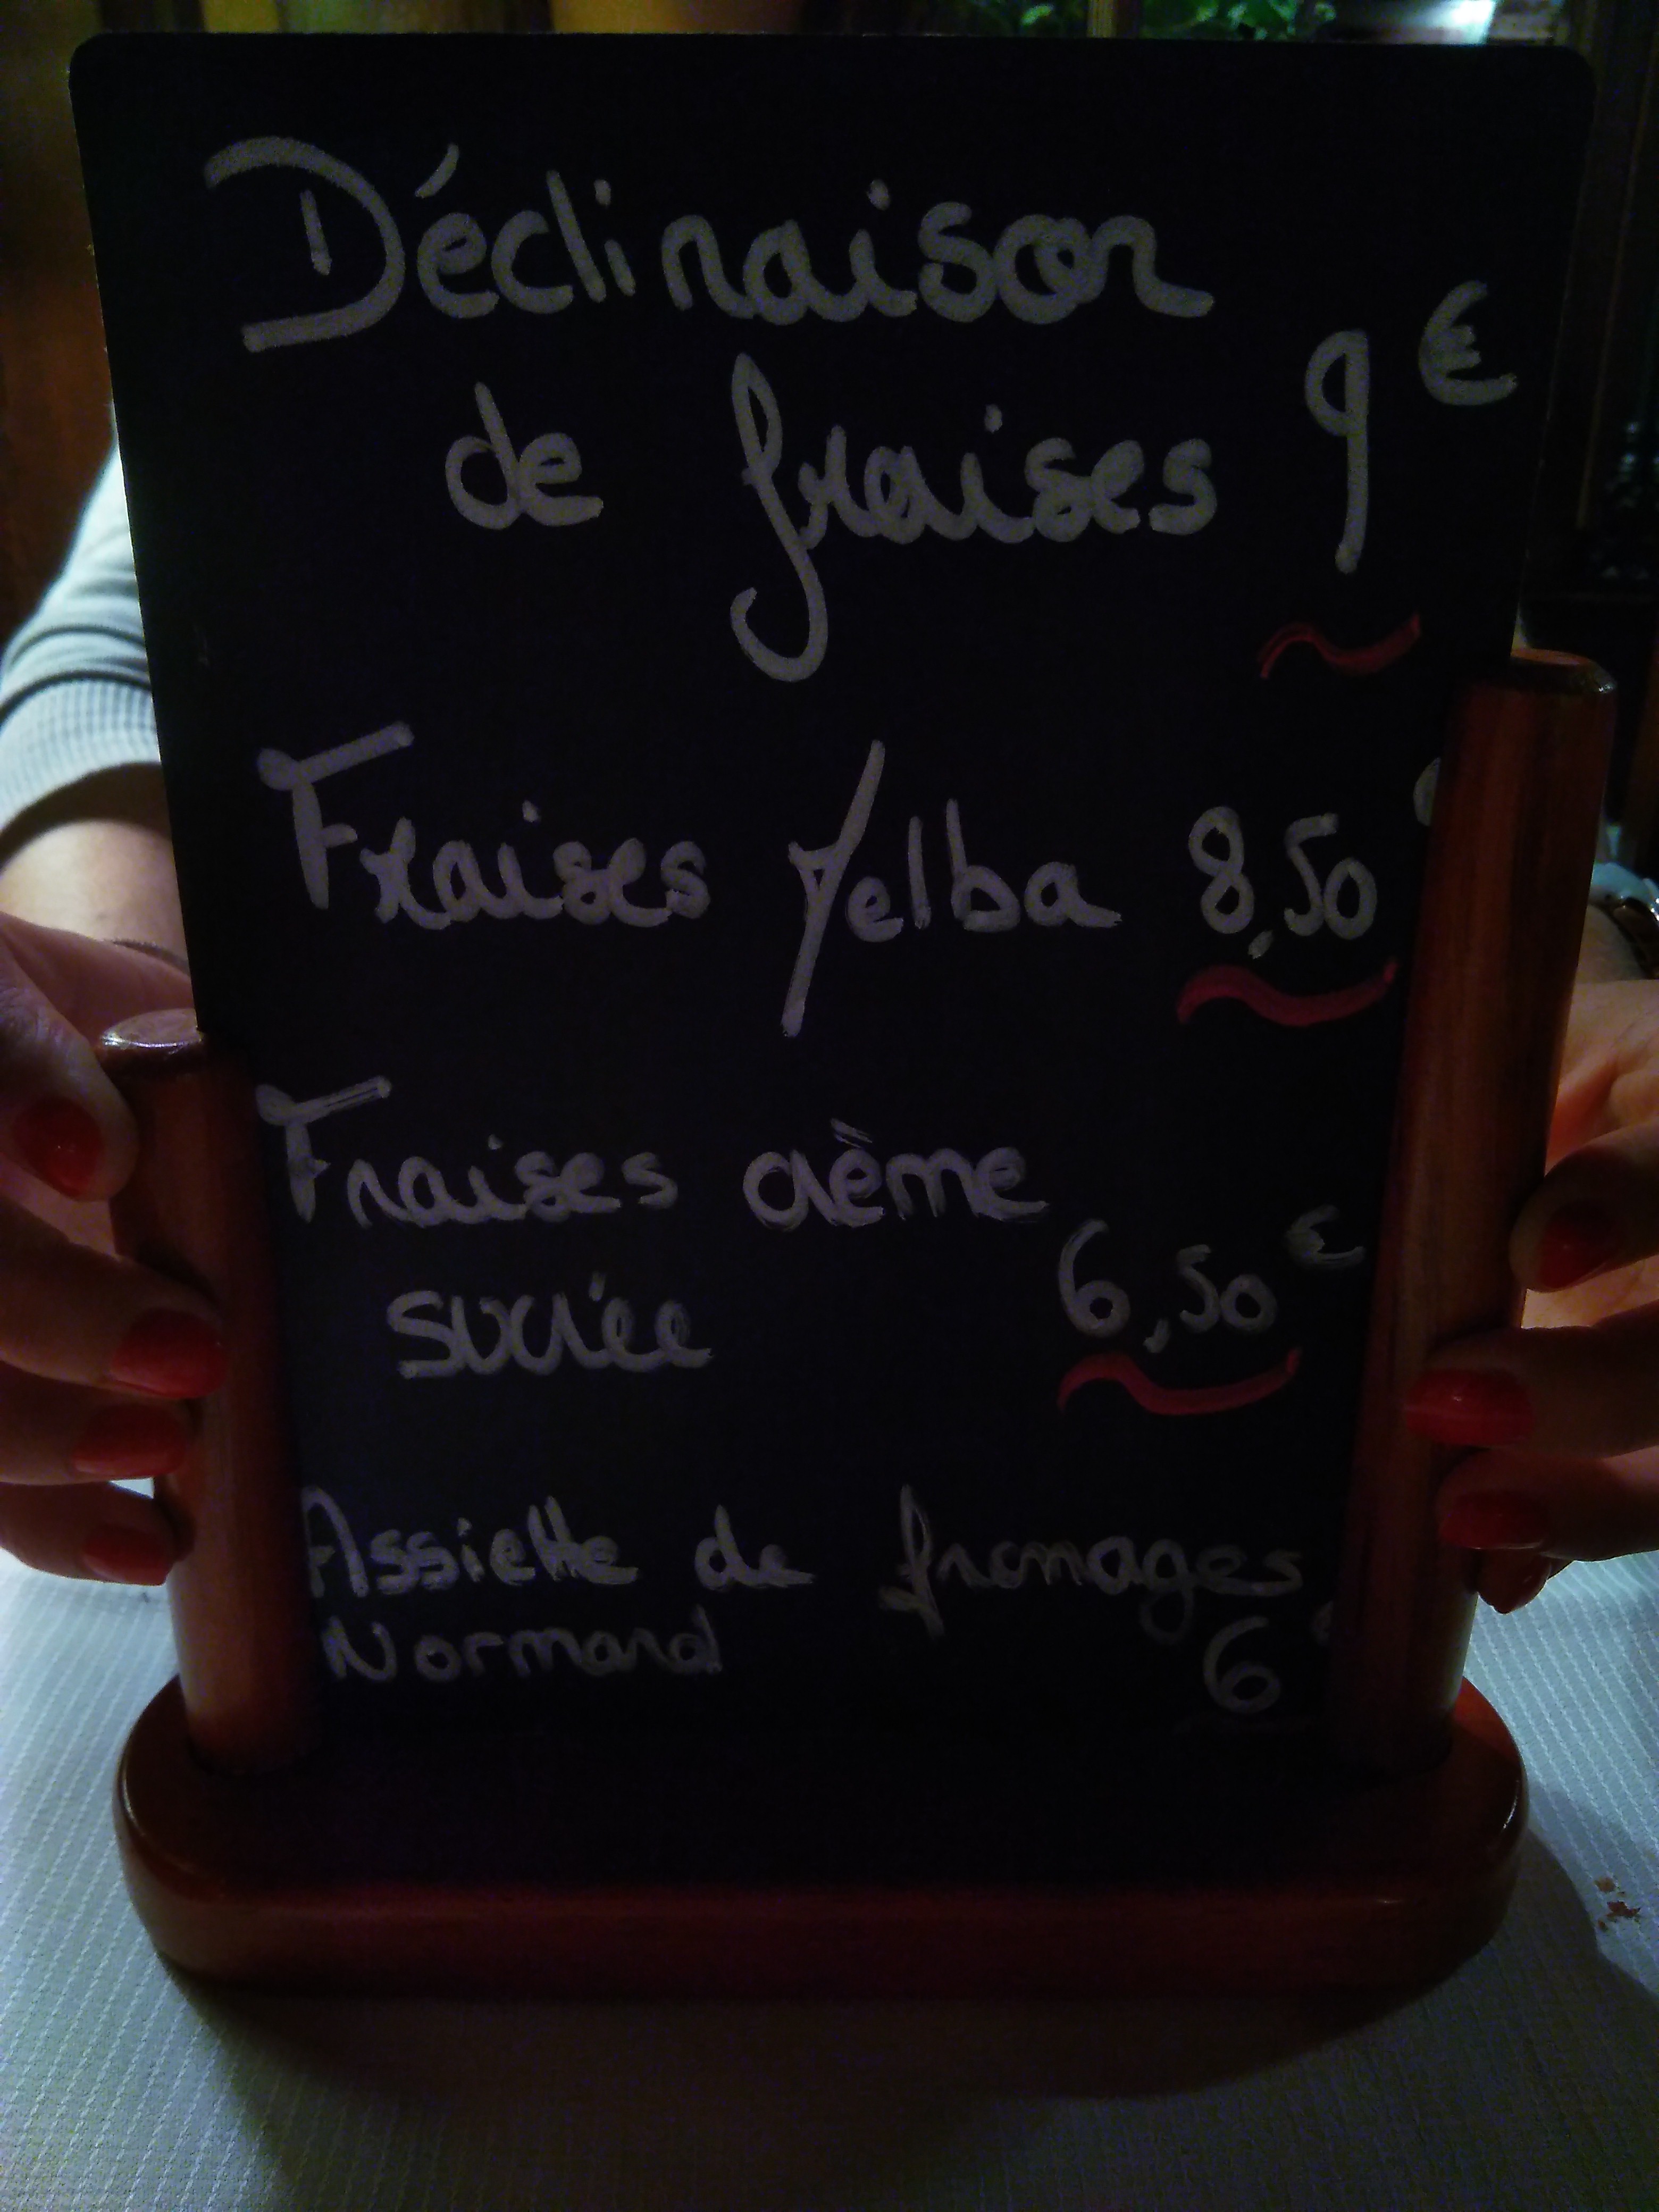 Déclinaison
de fraises 9€
Fraises Melba 8,50
Fraises crème
sucrée 6,50€
Assiette de fromages
Normand 6